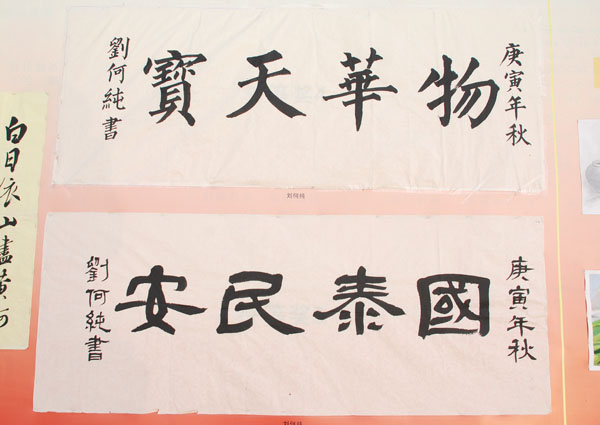 庚寅年秋
物華天寶
劉何純書
刘何纯
庚寅年秋
國泰民安
劉何純書
白日依山盡黃河